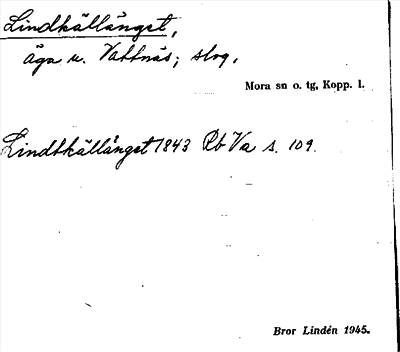 Lindkällänget,
äga u. Vattnäs; slog.
Mora sn o. tg, Kopp. l.
Lindtkällänget 1843 Rb Va s. 109.
Bror Lindén 1945.